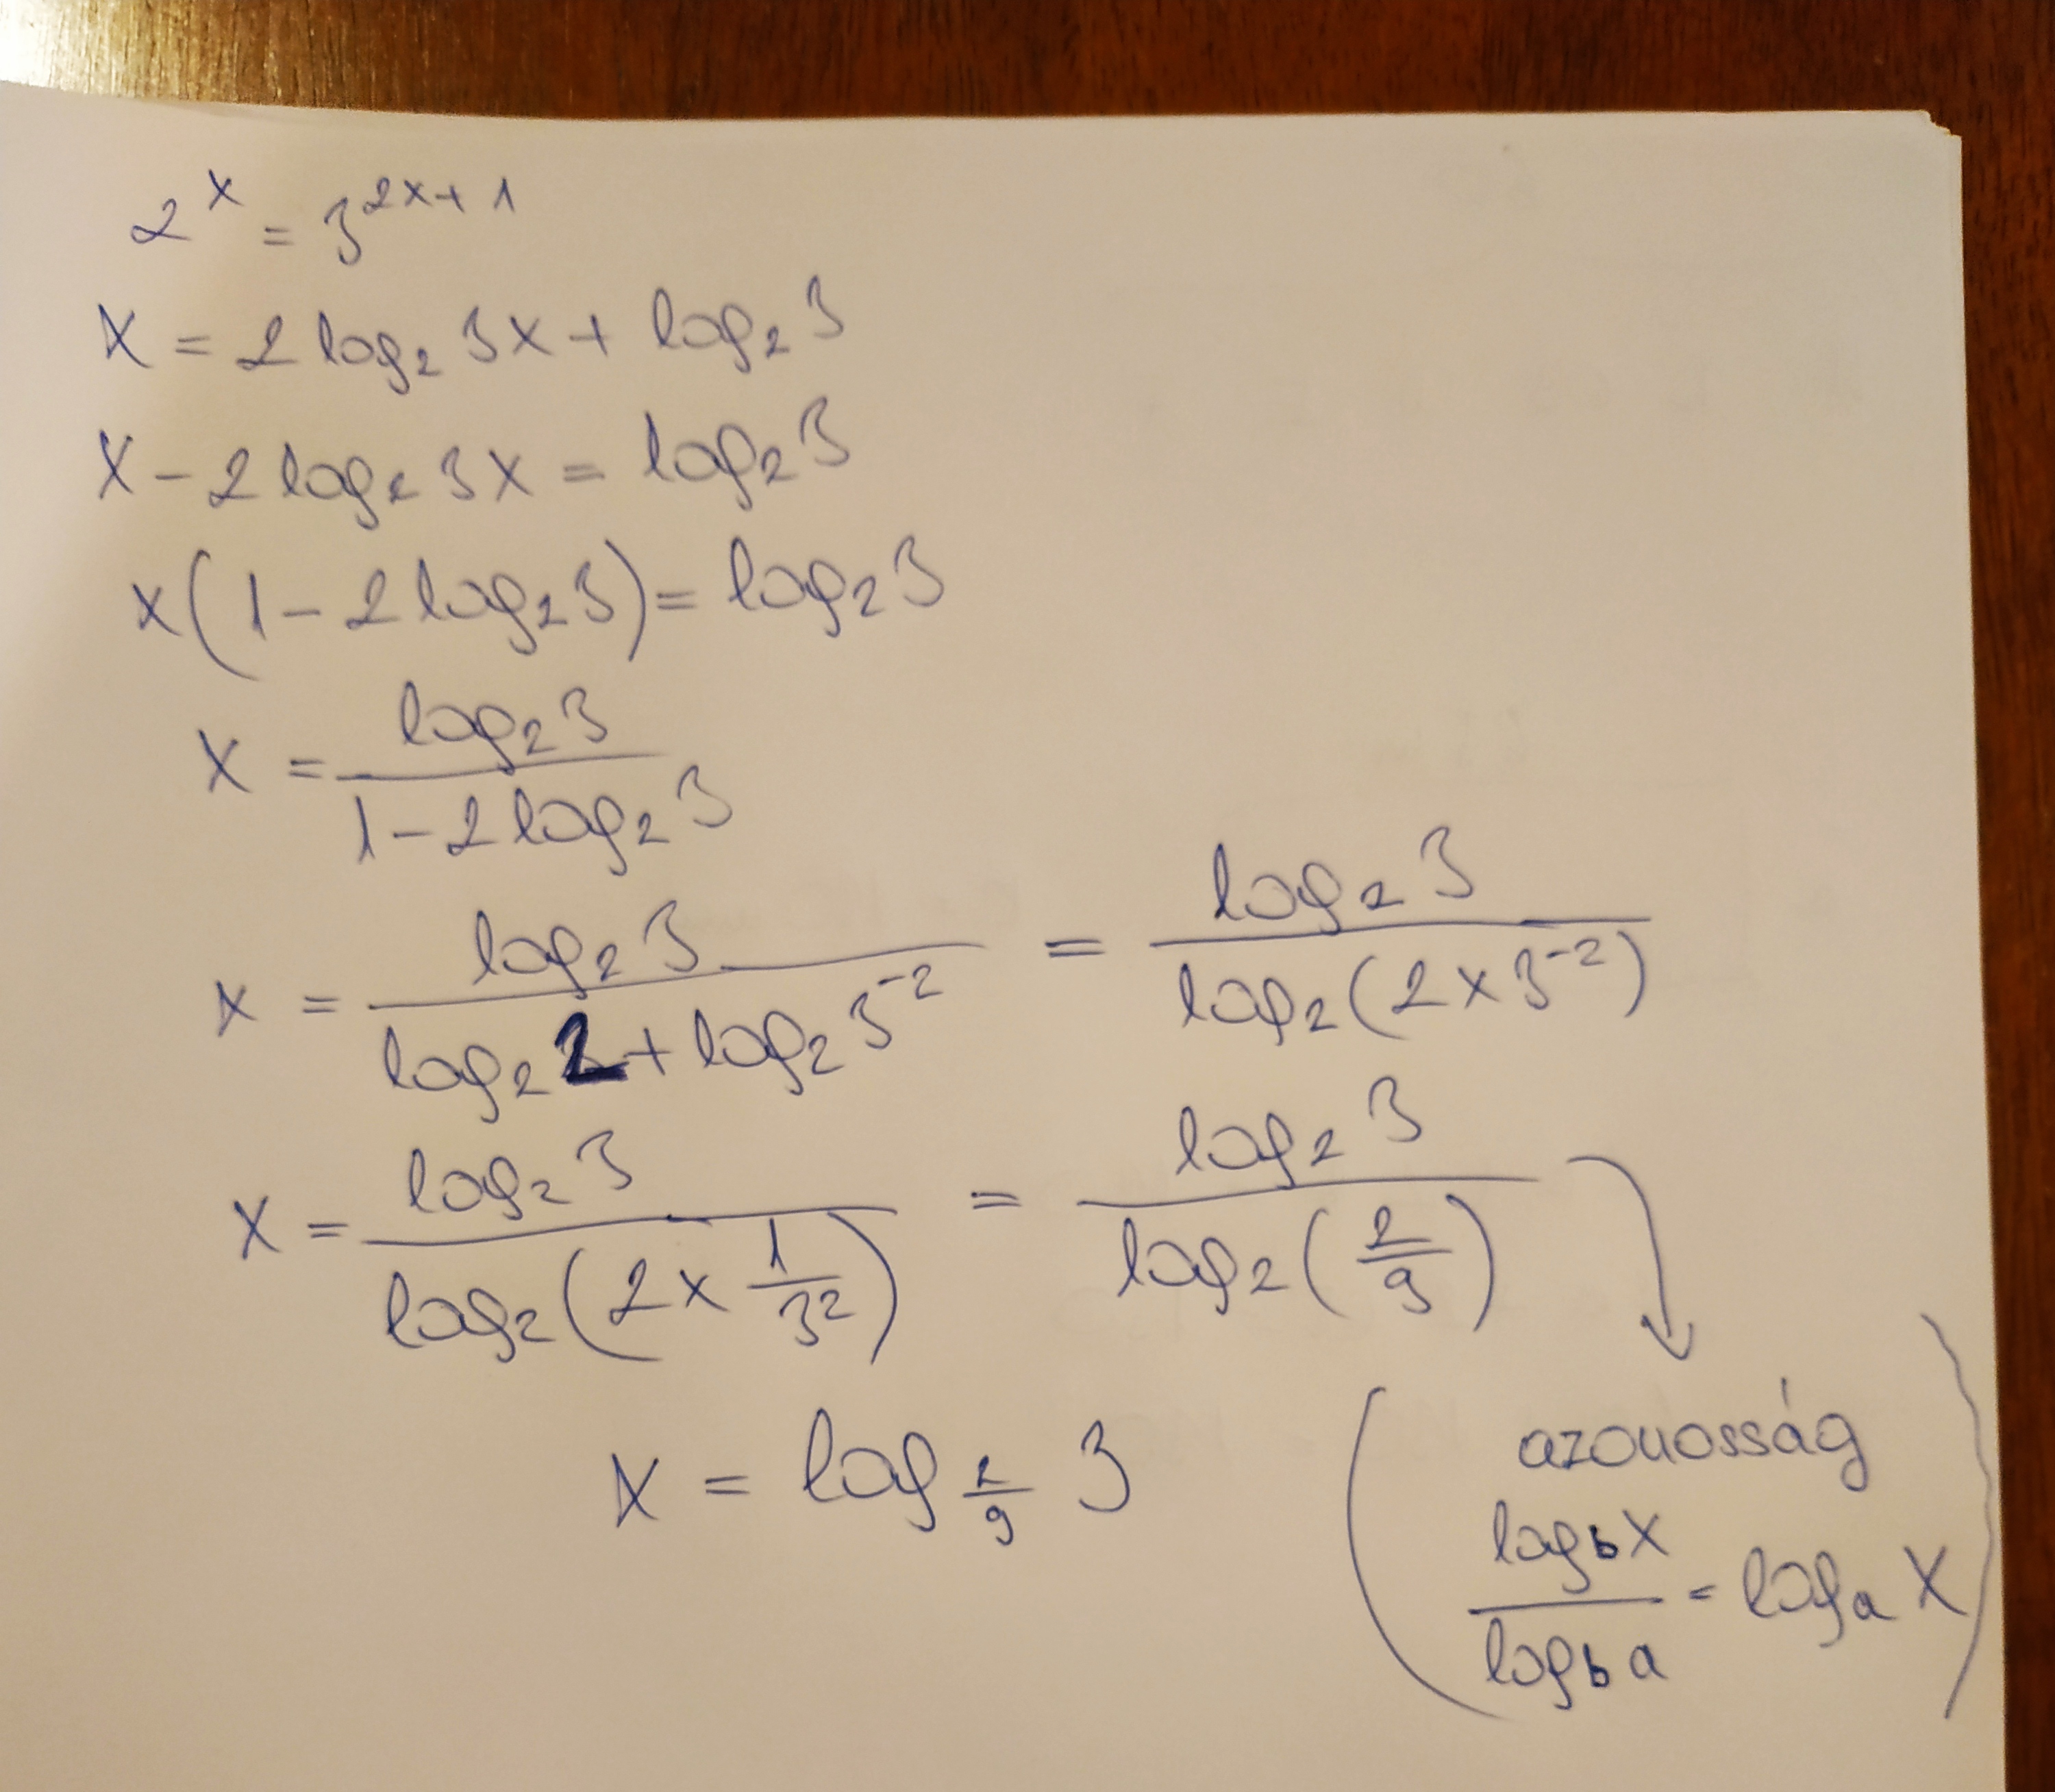 2^x = 3^{2x+1}
x = 2 log₂ 3x + log₂ 3
x - 2 log₂ 3x = log₂ 3
x(1 - 2 log₂ 3) = log₂ 3
x = \frac{log₂ 3}{1 - 2 log₂ 3}
x = \frac{log₂ 3}{log₂ 2 + log₂ 3^{-2}} = \frac{log₂ 3}{log₂ (2 × 3^{-2})}
x = \frac{log₂ 3}{log₂ (2 × \frac{1}{3^2})} = \frac{log₂ 3}{log₂ (\frac{2}{9})}
x = log_{\frac{2}{9}} 3
(azonosság
\frac{log_b x}{log_b a} = log_a x)